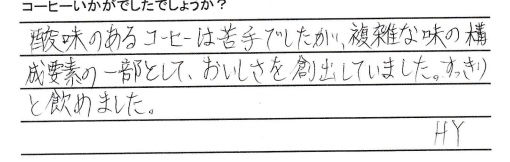 コーヒーいかがでしたでしょうか？
酸味のあるコーヒーは苦手でしたが、複雑な味の構
成要素の一部として、おいしさを創出していました。すっきり
と飲めました。
HY